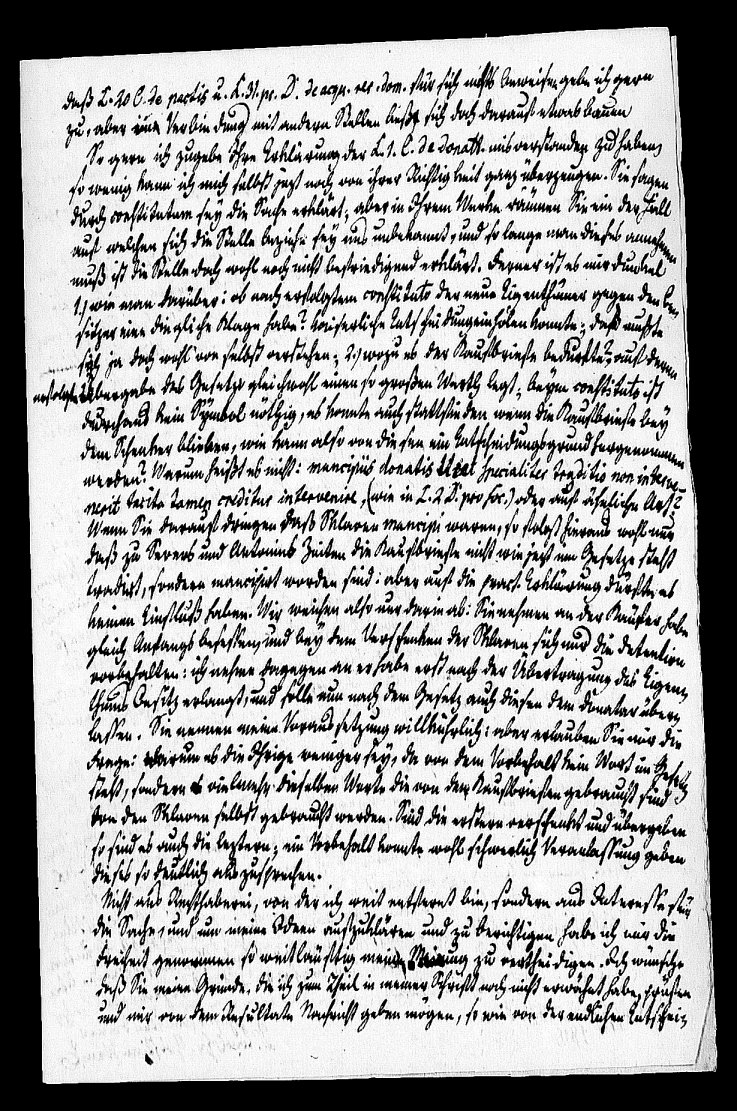 daß L. 20 C. de pactis u. L. 31. pr. D. de acqu. rer. dom. für sich nichts beweisen gebe ich gern
zu, aber in Verbindung mit andern Stellen ließe sich doch darauf etwas bauen
So gern ich zugebe Ihre Erklärung der L. 1. C. de donatt. misverstanden zu haben,
so wenig kann ich mich selbst jezt noch von ihrer Richtigkeit ganz überzeugen. Sie sagen
durch constitutum sey die Sache erklärt; aber in Ihrem Werke räumen Sie ein der Fall
auf welchen sich die Stelle beziehe sey uns unbekannt, und so lange man dieses annehmen
muß ist die Stelle doch wohl noch nicht befriedigend erklärt. Ferner ist es mir dunkel
1.) wie man darüber: ob nach erfolgtem constituto der neue Eigenthümer gegen den Be-
sitzer eine dingliche Klage habe? kaiserliche Entscheidung einholen konnte; daß mußte
sich ja doch wohl von selbst verstehen; 2.) wozu es der Kaufbriefe bedurfte? auf deren
erfolgte Übergabe das Gesetz gleichwohl einen so großen Werth legt; beym constituto ist
durchaus kein Symbol nöthig, es konnte auch stattfinden wenn die Kaufbriefe bey
dem Schenker blieben, wie kann also von diesen ein Entscheidungsgrund hergenommen
werden? Warum heißt es nicht: mancipiis donatis licet specialiter traditio non interve-
nerit tacita tamen creditur intervenire, (wie in L. 2 D. pro soc.) oder auf ähnliche Art?
Wenn Sie darauf dringen daß Sklaven mancipi waren, so folgt hieraus wohl nur
daß zu Severs und Antonins Zeiten die Kaufbriefe nicht wie jezt im Gesetze steht
tradirt, sondern mancipirt worden sind: aber auf die pract. Erklärung dürfte es
keinen Einfluß haben. Wir weichen also nur darin ab: Sie nehmen an der Käufer habe
gleich Anfangs besessen, und bey dem Verschenken der Sklaven sich nur die detention
vorbehalten: ich nehme dagegen an er habe erst nach der Übertragung des Eigen-
thums Besitz erlangt, und solle nun nach dem Gesetz auch diesen dem Donatar über-
lassen. Sie nennen meine Voraussetzung willkührlich: aber erlauben Sie mir die
Frage: warum es die Ihrige weniger sey, da von dem Vorbehalt kein Wort im Gesetz
steht, sondern vielmehr dieselben Worte die von den Kaufbriefen gebraucht sind
von den Sklaven selbst gebraucht werden. Sind die erstern verschenkt und übergeben
so sind es auch die leztern; ein Vorbehalt konnte wohl schwerlich Veranlassung geben
dieses so deutlich auszusprechen.
Nicht aus Rechthaberei, von der ich weit entfernt bin, sondern aus Interesse für
die Sache, und um meine Ideen aufzuklären und zu berichtigen habe ich mir die
Freiheit genommen so weitläuftig meine Meinung zu vertheidigen. Ich wünsche
daß Sie meine Gründe, die ich zum Theil in meiner Schrift noch nicht erwähnt habe, prüfen
und mir von dem Resultate Nachricht geben mögen, so wie von der endlichen Entschei-